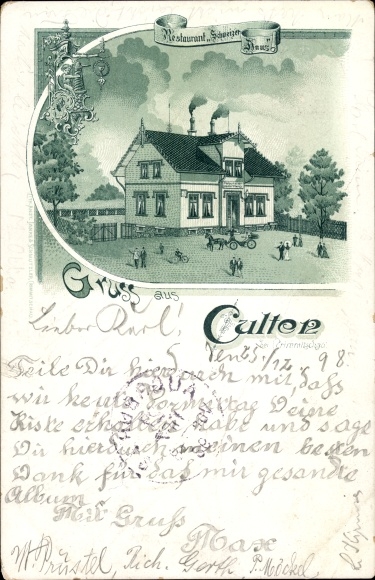 Restaurant "Schweizer
Haus"
Gruss aus
Culten
Lieber Karl!
Den 25/12. 98.
Teile Dir hierdurch mit, dass
wir heute Vormittag Deine
Kiste erhalten habe und sage
Dir hierdurch meinen besten
Dank für das mir gesandte
Album
Mit Gruss
Max
W. Prüstel, Rich. Gerth P. Möckel,